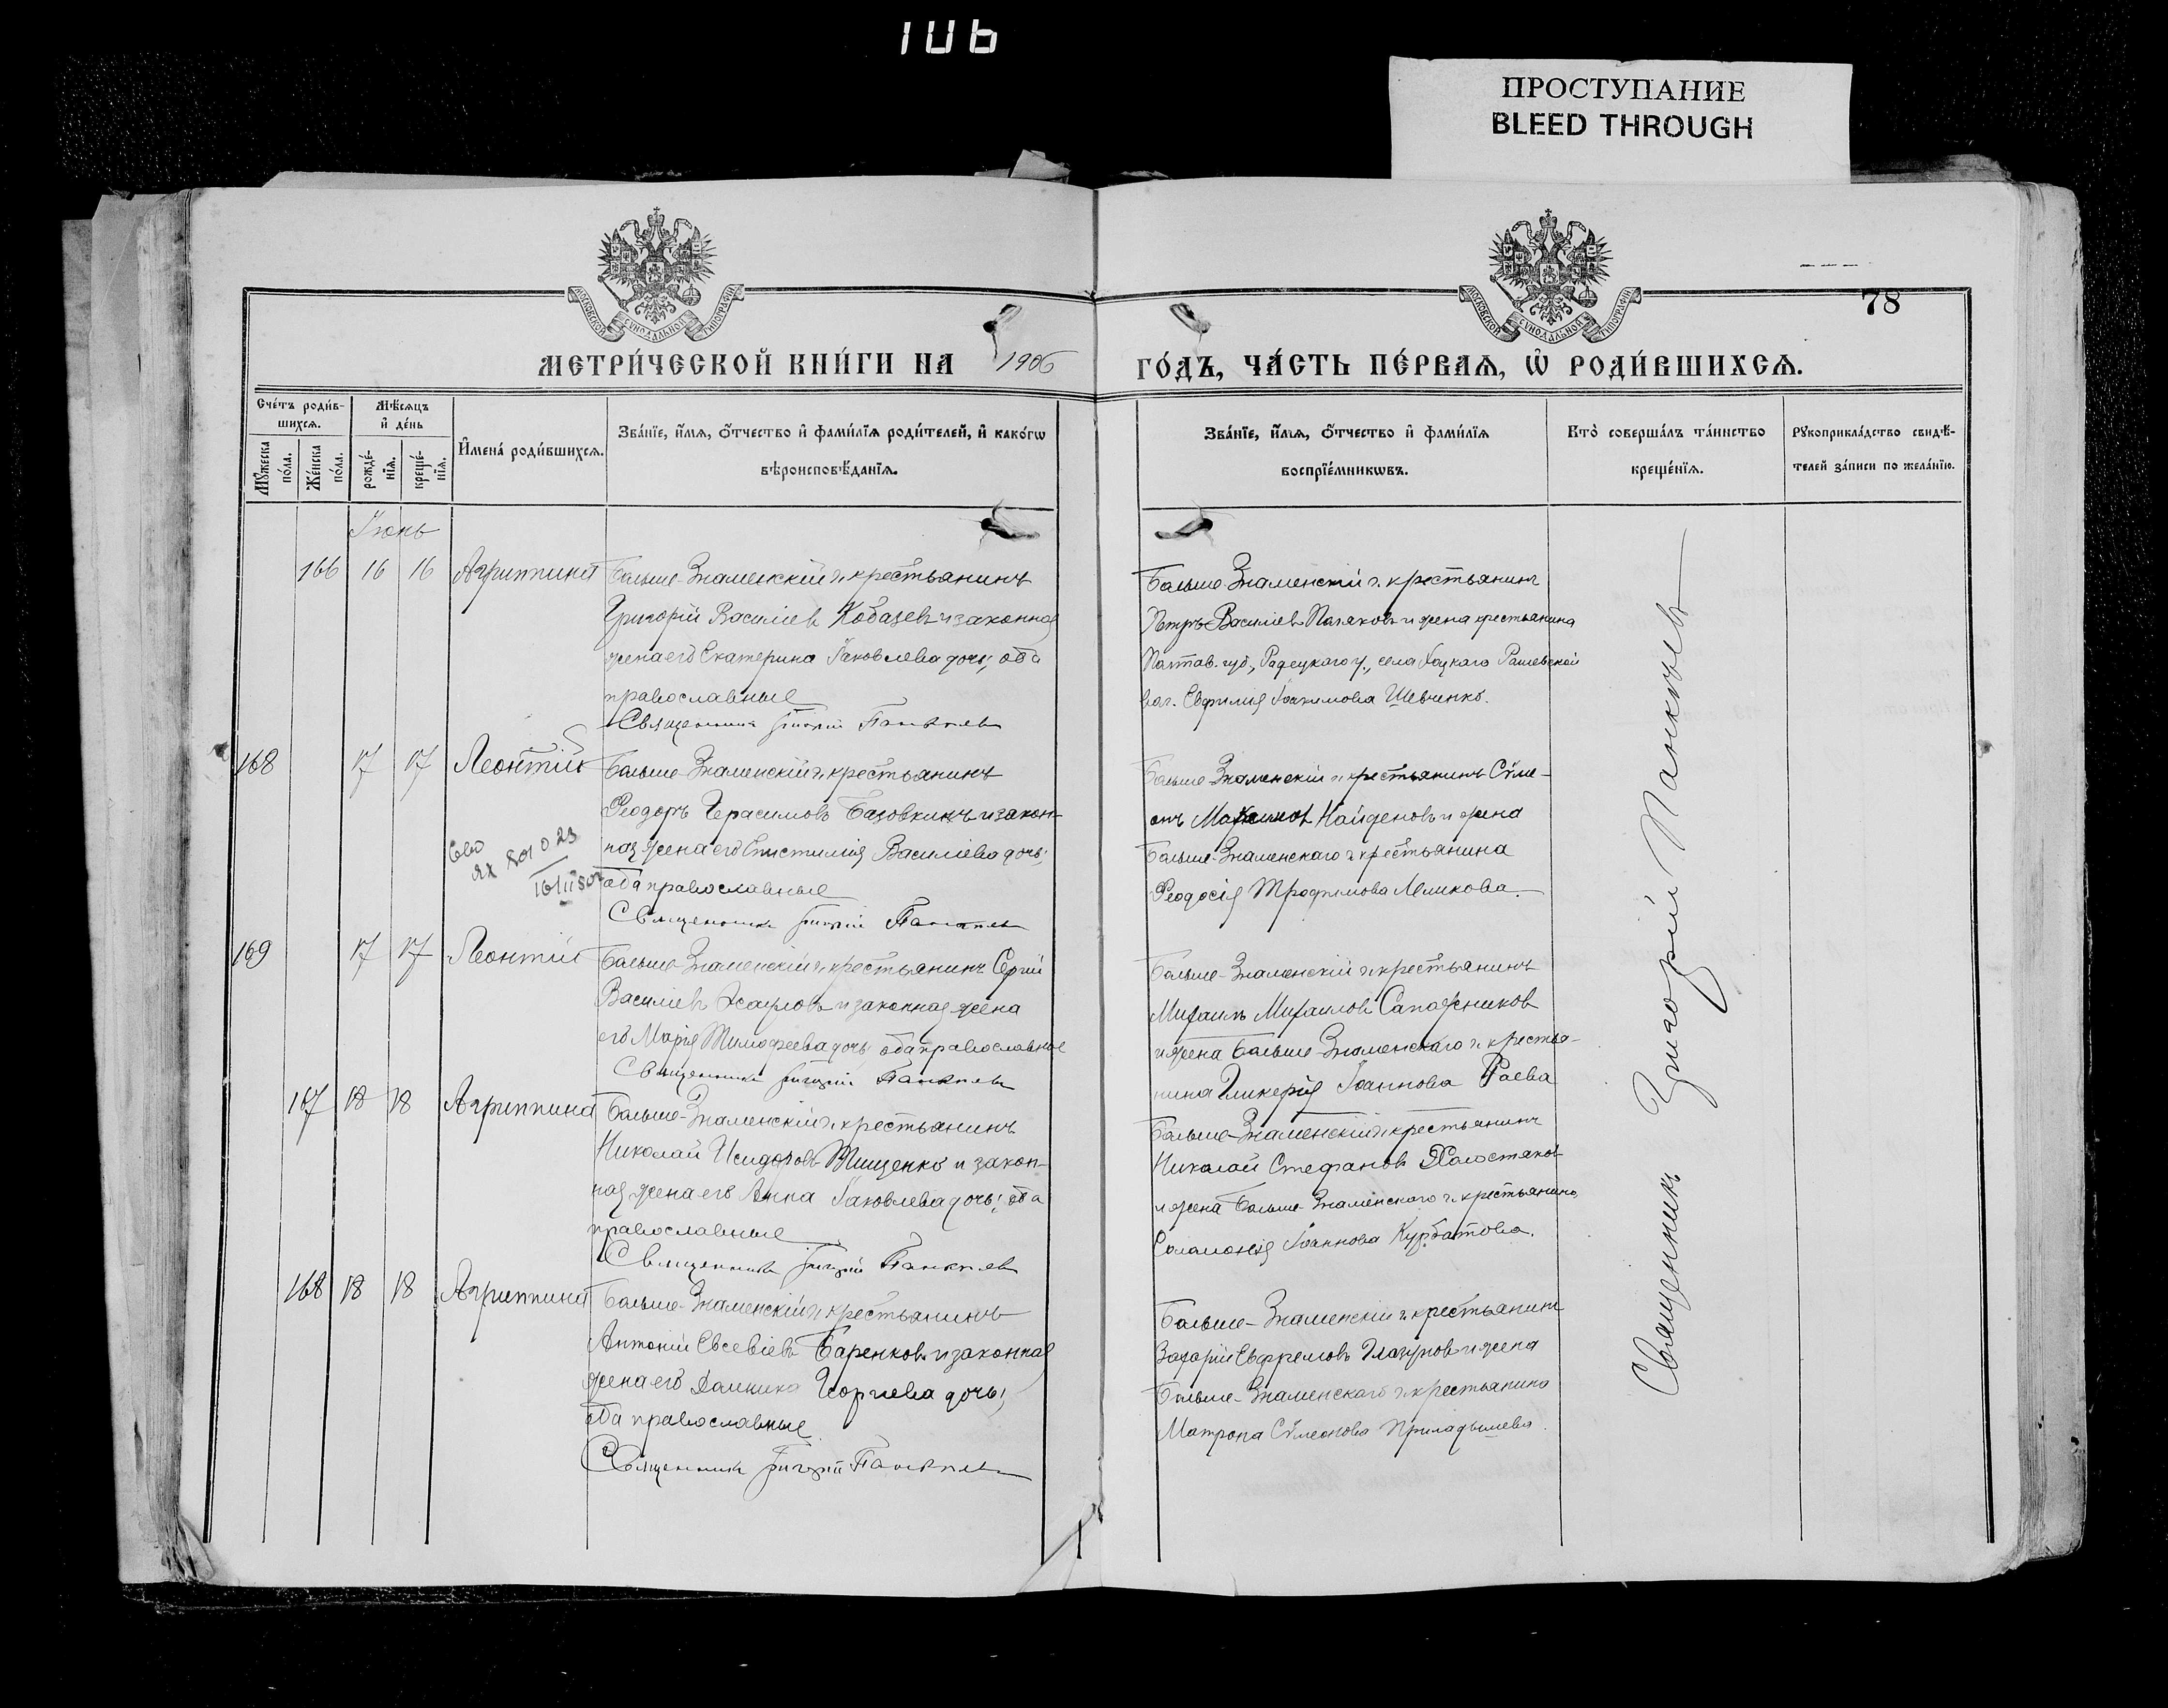 106
ПРОСТУПАНИЕ
BLEED THROUGH
МОСКОВСКОЙ СѴНОДАЛЬНОЙ ТИПОГРАФІИ
МОСКОВСКОЙ СѴНОДАЛЬНОЙ ТИПОГРАФІИ
78
МЕТРИ́ЧЕСКОЙ КНИ́ГИ НА 1906
ГО́ДЪ, ЧА́СТЬ ПЕ́РВАѦ, Ѽ РОДИ́ВШИХСѦ.
Сче́тъ роди́в-
шихсѧ.
Мѣ́сѧцъ
и҆ де́нь
Мꙋ́жеска по́ла.
Же́нска по́ла.
рожде́-
нїѧ.
креще́-
нїѧ.
И҆мена̀ роди́вшихсѧ.
Зва́нїе, и҆́мѧ, ѻ҆́тчество и҆ фами́лїѧ роди́телей, и҆ како́гѡ
вѣроисповѣ́данїѧ.
Зва́нїе, и҆́мѧ, ѻ҆́тчество и҆ фами́лїѧ
воспрїе́мникѡвъ.
Кто̀ соверша́лъ та́инство
креще́нїѧ.
Рꙋкоприкла́дство свидѣ́-
телей за́писи по жела́нїю.
Іюнь
166 16 16 Агриппина Больше-Знаменскій г. крестьянинъ
Григорій Василіевъ Кобазевъ и законная
жена его Екатерина Іаковлева дочь, оба
православные
Священникъ Григорій Панкѣев
Больше Знаменскій г. крестьянинъ
Петръ Василіев Поляковъ и жена крестьянина
Полтав. губ., Гадецкаго у., села Рашевской
вол. Евфимія Іоакимова Шевченко.
168 17 17 Леонтій Больше-Знаменскій г. крестьянинъ
Ѳеодоръ Герасимовъ Базовкинъ и закон-
ная жена его Епистимія Василіева дочь;
оба православные
Священникъ Григорій Панкѣев
Больше Знаменскій г. крестьянинъ Сѵме-
онъ Максимов Найденовъ и жена
Больше-Знаменскаго г. крестьянина
Ѳеодосія Трофимова Меликова.
169 17 17 Леонтій Больше-Знаменскій г. крестьянинъ Сергій
Василіевъ и законная жена
его Марія Тимофеева дочь оба православные
Священникъ Григорій Панкѣев
Больше-Знаменскій г. крестьянинъ
Михаилъ Михаилов Сапожников
и жена Больше-Знаменскаго г. крестья-
нина Гликерія Іоаннова Раева
167 18 18 Агриппина Больше-Знаменскій г. крестьянинъ
Николай Исидоровъ Тищенко и закон-
ная жена его Анна Іаковлева дочь; оба
православные
Священникъ Григорій Панкѣев
Больше-Знаменскій г. крестьянинъ
Николай Стефанов Холостяков
и жена Больше-Знаменскаго г. крестьянина
Соломонія Іоаннова Курбатова.
168 18 18 Агриппина Больше-Знаменскій г. крестьянинъ
Антоній Евсевіевъ Баренков и законная
жена его Домника Георгіева дочь;
оба православные
Священникъ Григорій Панкѣев
Больше-Знаменскій г. крестьянинъ
Захарій Ефремовъ Глазунов и жена
Больше-Знаменскаго г. крестьянина
Матрона Сѵмеонова Приладышева.
Священникъ Григорій Панкѣевъ